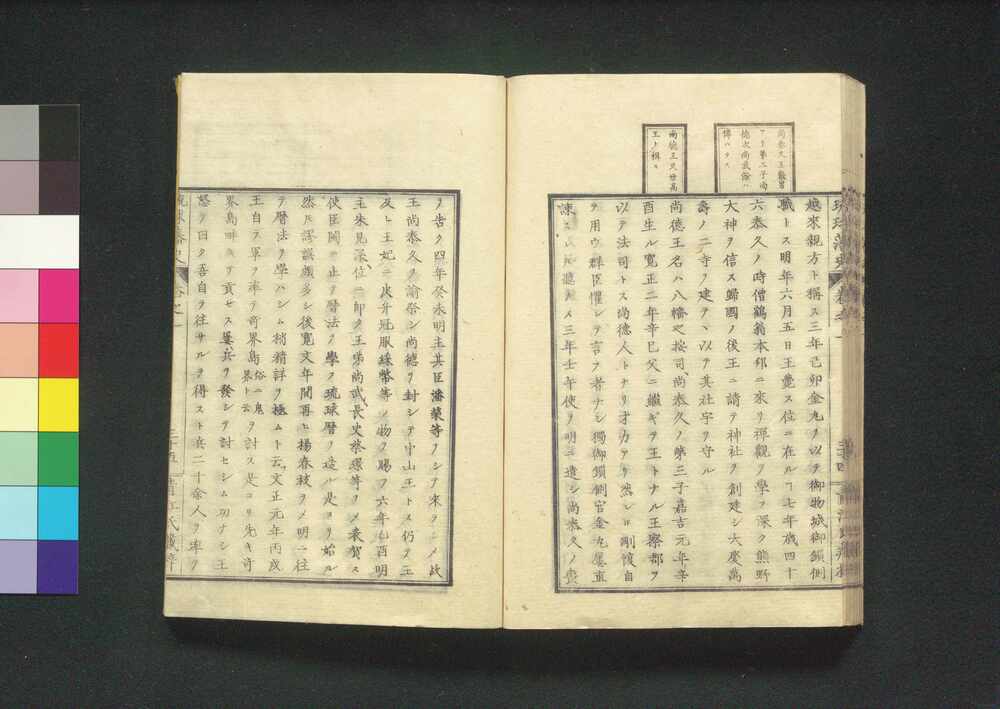 尚泰久王数男
アリ第二子尚
徳次尚武餘ハ
傳ハラス
尚徳王又世高
王ト稱ス
琉球藩史 巻之一
越來親方ト稱ス三年己卯金丸ヲ以テ御物城御鎖側
職トス明年六月五日王薨ス位ニ在ルヿ七年歳四十
六泰久ノ時僧鶴翁本邦ニ來リ禪觀ヲ學フ深ク熊野
大神ヲ信ス歸國ノ後王ニ請テ神社ヲ創建シ大慶萬
壽ノ二寺ヲ建テヽ以テ其社字ヲ守ル
尚徳王名ハ八幡之按司尚泰久ノ第三子嘉吉元年辛
酉生ル寛正二年辛巳父ニ繼ギテ王トナル王察都ヲ
以テ法司トス尚徳人トナリ才力アリ然レ𪜈剛愎自
ヲ用ウ群臣懼レテ言フ者ナシ獨御鎖側官金丸屢直
諫ス 聽 三年壬午使ヲ明ニ遣シ尚泰久ノ貴
ヲ告ク四年癸未明主其臣潘榮等ヲシテ來ラシメ故
王尚泰久ヲ諭祭シ尚徳ヲ封シテ中山王トス仍ヲ王
及ト王妃ニ皮弁冠服綵幣等ノ物ヲ賜フ六年乙酉明
主朱見深位ニ即ク王弟尚武長史蔡璟等ヲメ表賀ス
使臣閩ニ止リ暦法ヲ學ヲ琉球暦ヲ造ル是ヨリ始ル
然𪜈謬誤頗多シ後寛文年間再ヒ楊春枝ヲメ明ニ往
ヲ暦法ヲ學ハシム稍精詳ヲ極ムト云文正元年丙戌
王自ラ軍ヲ率テ奇界島俗ニ鬼界ト云ヲ討ス是ヨリ先キ奇
界島畔キヲ貢セス屢兵ヲ發シテ討セシム功ナシ王
怒ヲ曰ク吾自ラ往サルヲ得スト兵二千余人ヲ率ヲ
琉球藩史 巻之一
三十五 青江氏藏梓